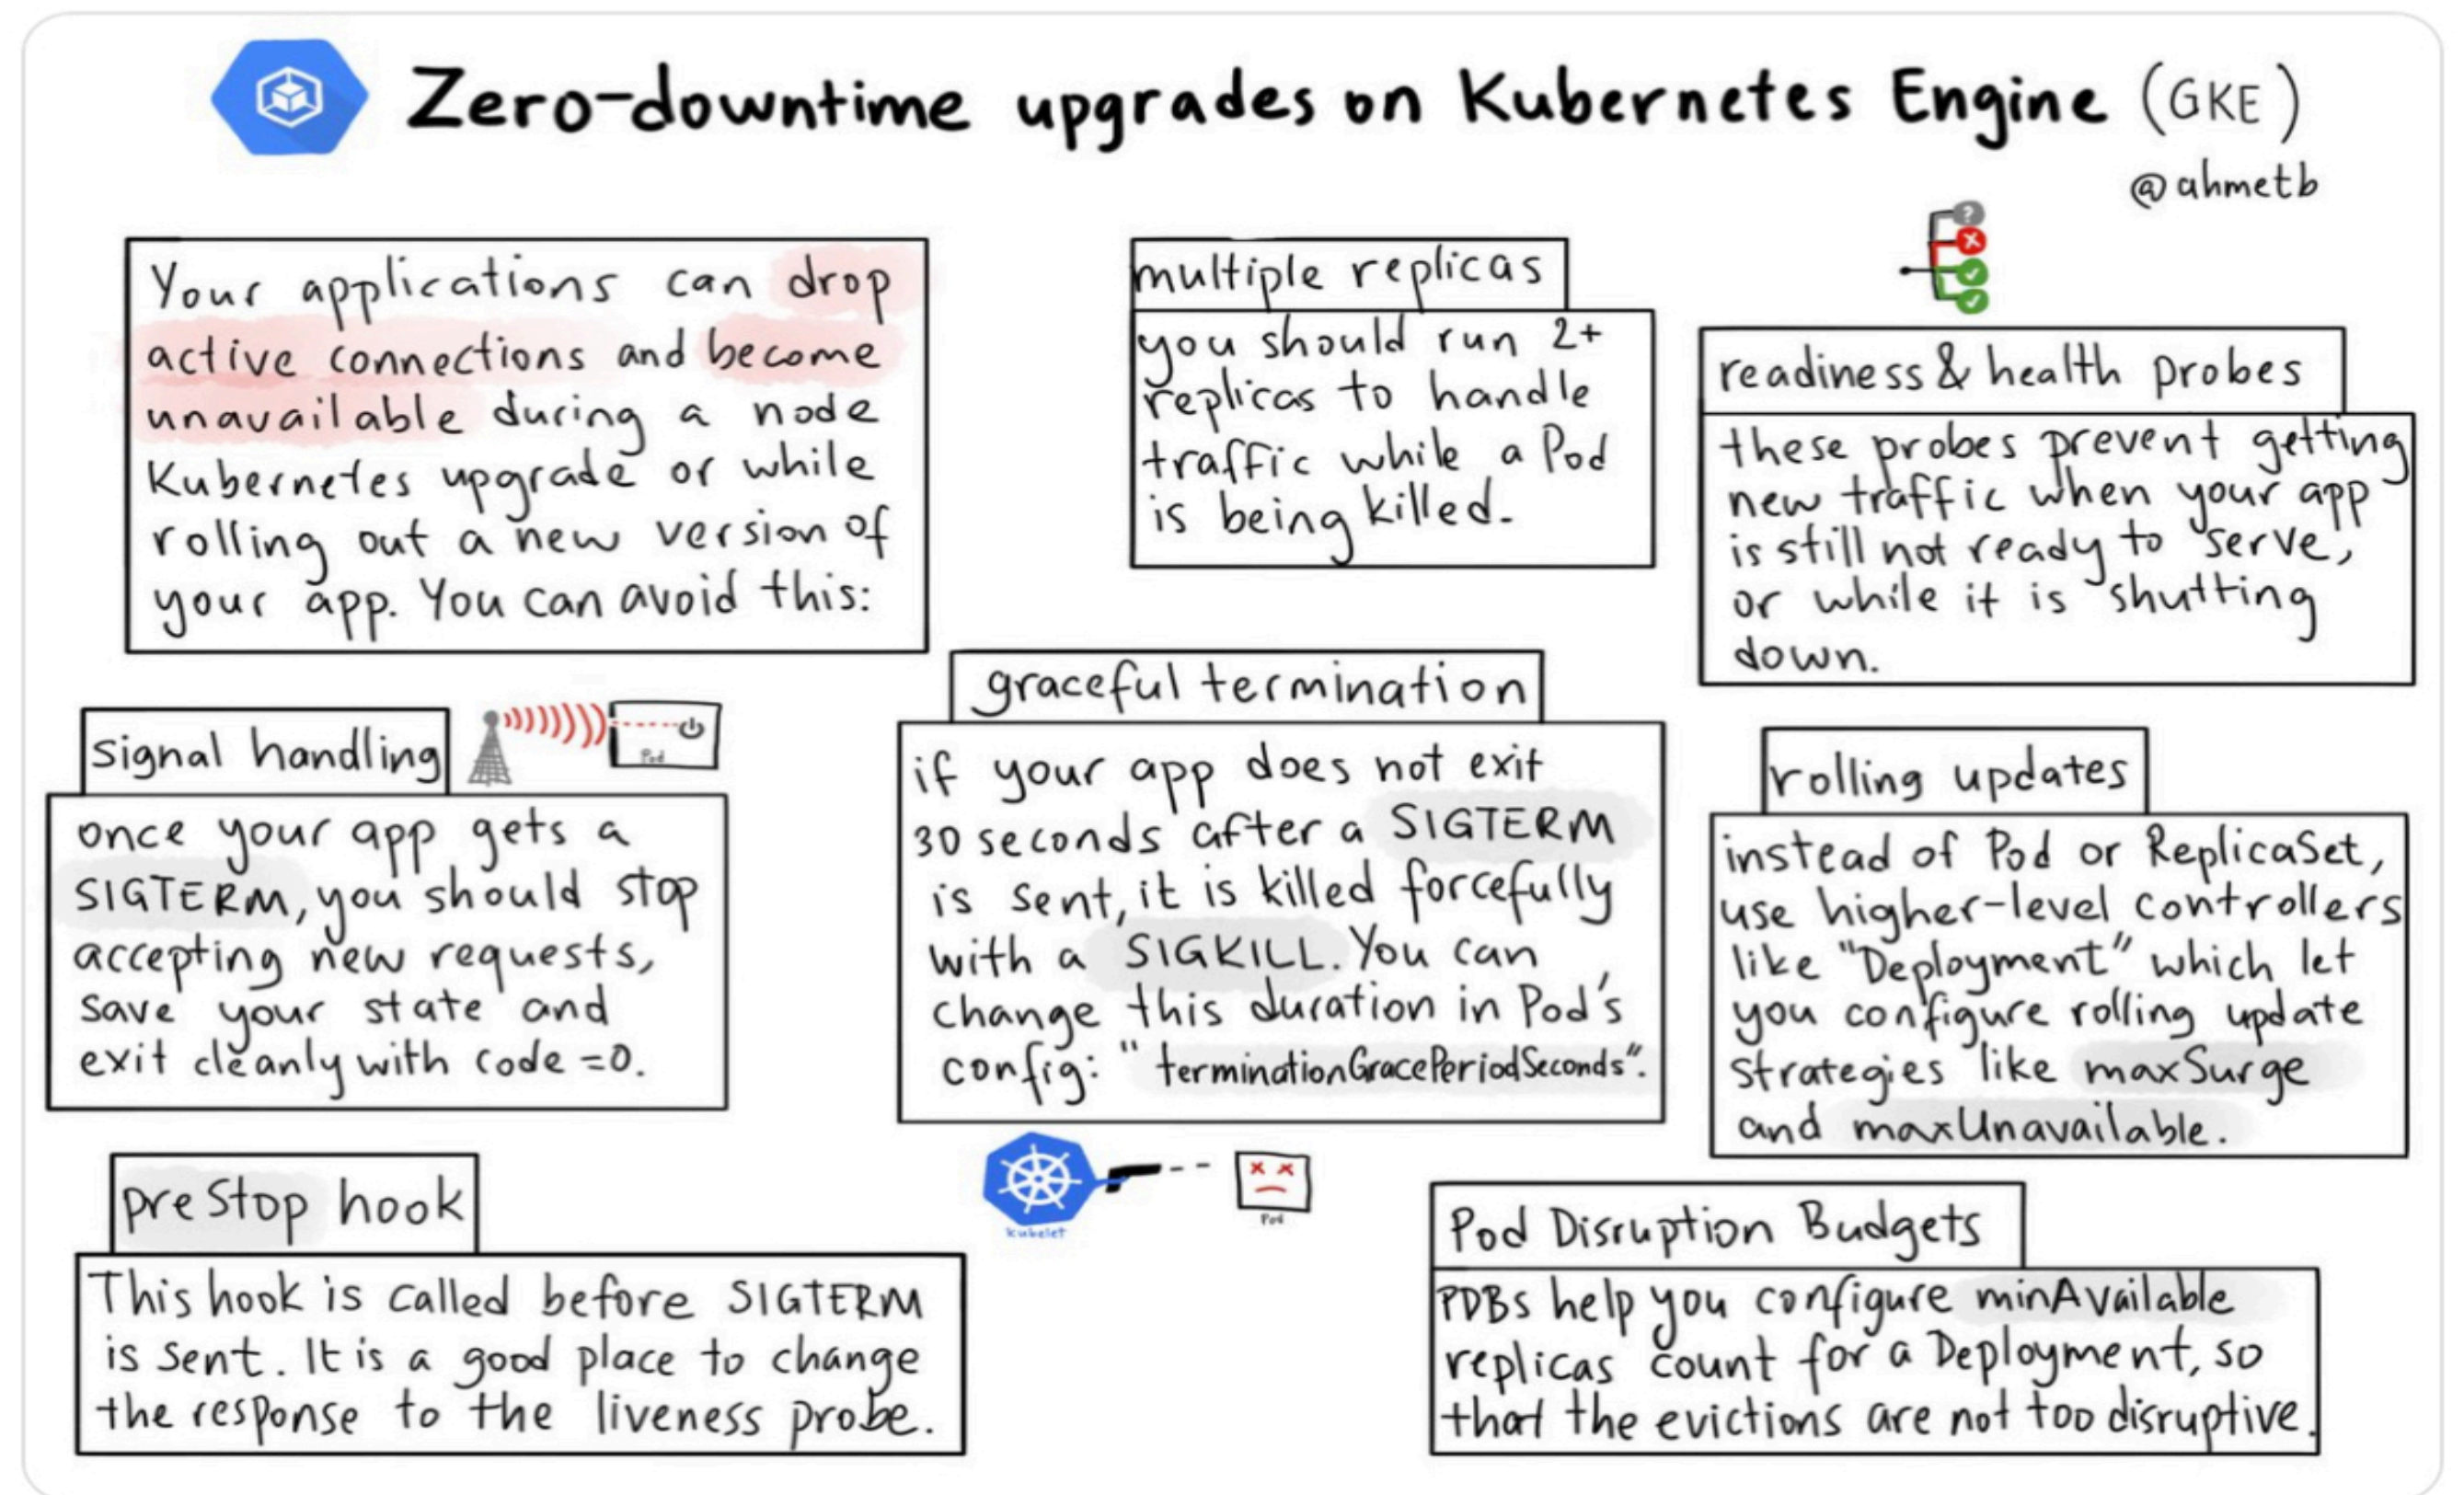 Zero-downtime upgrades on Kubernetes Engine (GKE)
@ahmetb
Your applications can drop
active connections and become
unavailable during a node
Kubernetes upgrade or while
rolling out a new version of
your app. You can avoid this:
multiple replicas
you should run 2+
replicas to handle
traffic while a Pod
is being killed.
?
readiness & health probes
these probes prevent getting
new traffic when your app
is still not ready to serve,
or while it is shutting
down.
signal handling
Pod
once your app gets a
SIGTERM, you should stop
accepting new requests,
save your state and
exit cleanly with code =0.
graceful termination
if your app does not exit
30 seconds after a SIGTERM
is sent, it is killed forcefully
with a SIGKILL. You can
change this duration in Pod's
config: "terminationGracePeriodSeconds".
kubelet
Pod
rolling updates
instead of Pod or ReplicaSet,
use higher-level controllers
like "Deployment" which let
you configure rolling update
strategies like maxSurge
and maxUnavailable.
preStop hook
This hook is called before SIGTERM
is sent. It is a good place to change
the response to the liveness probe.
Pod Disruption Budgets
PDBs help you configure minAvailable
replicas count for a Deployment, so
that the evictions are not too disruptive.